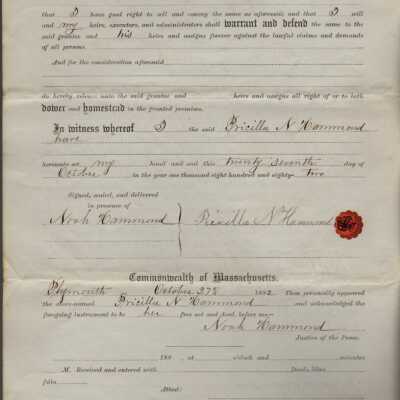 that I have good right to sell and convey the same as aforesaid; and that I will
and my heirs, executors, and administrators shall warrant and defend the same to the
said grantee and his heirs and assigns forever against the lawful claims and demands
of all persons.
And for the consideration aforesaid
do hereby release unto the said grantee and heirs and assigns all right of or to both
dower and homestead in the granted premises.
In witness whereof I the said Pricilla N Hammond
have
hereunto set my hand and seal this twenty seventh day of
October in the year one thousand eight hundred and eighty-two
Signed, sealed, and delivered
in presence of
Noah Hammond Pricilla N Hammond
Commonwealth of Massachusetts.
Plymouth October 27th 1882 Then personally appeared
the above-named Pricilla N Hammond and acknowledged the
foregoing instrument to be her free act and deed, before me—
Noah Hammond
Justice of the Peace.
188 , at o'clock and minutes
M. Received and entered with Deeds,
folio
Attest: